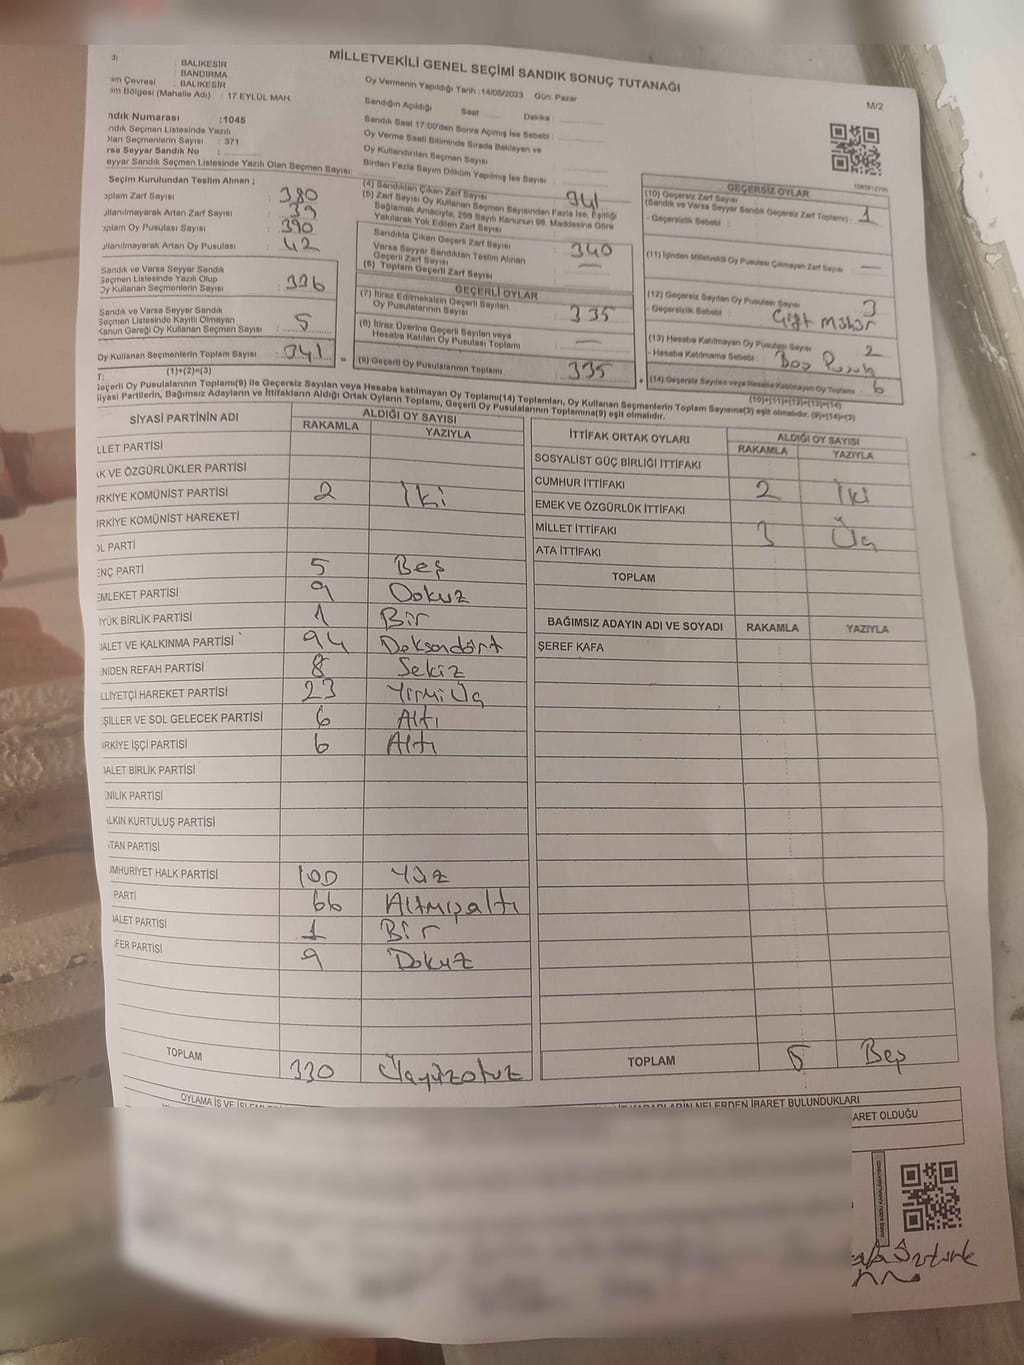 MİLLETVEKİLİ GENEL SEÇİMİ SANDIK SONUÇ TUTANAĞI
M/2
: BALIKESİR
: BANDIRMA
im Çevresi : BALIKESİR
im Bölgesi (Mahalle Adı) : 17 EYLÜL MAH.
Oy Vermenin Yapıldığı Tarih :14/05/2023 Gün: Pazar
Sandığın Açıldığı Saat Dakika :
Sandık Saat 17:00'den Sonra Açımış İse Sebebi :
Oy Verme Saati Bitiminde Sırada Bekleyen ve
Oy Kullandırılan Seçmen Sayısı :
Birden Fazla Sayım Döküm Yapılmış İse Sayısı :
ndık Numarası :1045
ndık Seçmen Listesinde Yazılı
olan Seçmenlerin Sayısı : 371
rsa Seyyar Sandık No :
eyyar Sandık Seçmen Listesinde Yazılı Olan Seçmen Sayısı:
Seçim Kurulundan Teslim Alınan ;
oplam Zarf Sayısı : 380
ullanılmayarak Artan Zarf Sayısı : 39
oplam Oy Pusulası Sayısı : 390
ullanılmayarak Artan Oy Pusulası : 42
Sandık ve Varsa Seyyar Sandık
Seçmen Listesinde Yazılı Olup
Oy Kullanan Seçmenlerin Sayısı : 336
Sandık ve Varsa Seyyar Sandık
Seçmen Listesinde Kayıtlı Olmayan
Kanun Gereği Oy Kullanan Seçmen Sayısı : 5
Oy Kullanan Seçmenlerin Toplam Sayısı : 341
(1)+(2)=(3)
(4) Sandıktan Çıkan Zarf Sayısı : 341
(5) Zarf Sayısı Oy Kullanan Seçmen Sayısından Fazla İse, Eşitliği
Sağlamak Amacıyla; 298 Sayılı Kanunun 98. Maddesine Göre
Yakılarak Yok Edilen Zarf Sayısı
Sandıkta Çıkan Geçerli Zarf Sayısı : 340
Varsa Seyyar Sandıktan Teslim Alınan
Geçerli Zarf Sayısı : —
(6) Toplam Geçerli Zarf Sayısı
GEÇERLİ OYLAR
(7) İtiraz Edilmeksizin Geçerli Sayılan
Oy Pusulalarının Sayısı : 335
(8) İtiraz Üzerine Geçerli Sayılan veya
Hesaba Katılan Oy Pusulası Toplamı : —
(9) Geçerli Oy Pusulalarının Toplamı : 335
GEÇERSİZ OYLAR
(10) Geçersiz Zarf Sayısı
(Sandık ve Varsa Seyyar Sandık Geçersiz Zarf Toplamı) : 1
- Geçersizlik Sebebi :
(11) İçinden Milletvekili Oy Pusulası Çıkmayan Zarf Sayısı : —
(12) Geçersiz Sayılan Oy Pusulası Sayısı : 3
- Geçersizlik Sebebi : Çift Mühür
(13) Hesaba Katılmayan Oy Pusulası Sayısı : 2
- Hesaba Katılmama Sebebi : Boş Pusula
(14) Geçersiz Sayılan veya Hesaba Katılmayan Oy Toplamı : 6
(10)+(11)+(12)+(13)=(14)
T:
Geçerli Oy Pusulalarının Toplamı(9) ile Geçersiz Sayılan veya Hesaba katılmayan Oy Toplamı(14) Toplamları, Oy Kullanan Seçmenlerin Toplam Sayısına(3) eşit olmalıdır. (9)+(14)=(3)
iyasi Partilerin, Bağımsız Adayların ve İttifakların Aldığı Ortak Oyların Toplamı, Geçerli Oy Pusulalarının Toplamına(9) eşit olmalıdır.
SİYASİ PARTİNİN ADI ALDIĞI OY SAYISI
RAKAMLA YAZIYLA
LLET PARTİSİ
AK VE ÖZGÜRLÜKLER PARTİSİ
ÜRKİYE KOMÜNİST PARTİSİ 2 İki
ÜRKİYE KOMÜNİST HAREKETİ
OL PARTİ
ENÇ PARTİ 5 Beş
EMLEKET PARTİSİ 9 Dokuz
ÜYÜK BİRLİK PARTİSİ 1 Bir
DALET VE KALKINMA PARTİSİ 94 Doksandört
ENİDEN REFAH PARTİSİ 8 Sekiz
LLİYETÇİ HAREKET PARTİSİ 23 Yirmi Üç
EŞİLLER VE SOL GELECEK PARTİSİ 6 Altı
ÜRKİYE İŞÇİ PARTİSİ 6 Altı
DALET BİRLİK PARTİSİ
ENİLİK PARTİSİ
ALKIN KURTULUŞ PARTİSİ
ATAN PARTİSİ
UMHURİYET HALK PARTİSİ 100 Yüz
PARTİ 66 Altmışaltı
DALET PARTİSİ 1 Bir
AFER PARTİSİ 9 Dokuz
TOPLAM 330 Üçyüzotuz
İTTİFAK ORTAK OYLARI ALDIĞI OY SAYISI
RAKAMLA YAZIYLA
SOSYALİST GÜÇ BİRLİĞİ İTTİFAKI
CUMHUR İTTİFAKI 2 İki
EMEK VE ÖZGÜRLÜK İTTİFAKI
MİLLET İTTİFAKI 3 Üç
ATA İTTİFAKI
TOPLAM
BAĞIMSIZ ADAYIN ADI VE SOYADI RAKAMLA YAZIYLA
ŞEREF KAFA
TOPLAM 5 Beş
OYLAMA İŞ VE İŞLEMLERİ
KARARLARIN NELERDEN İBARET BULUNDUKLARI
ARET OLDUĞU